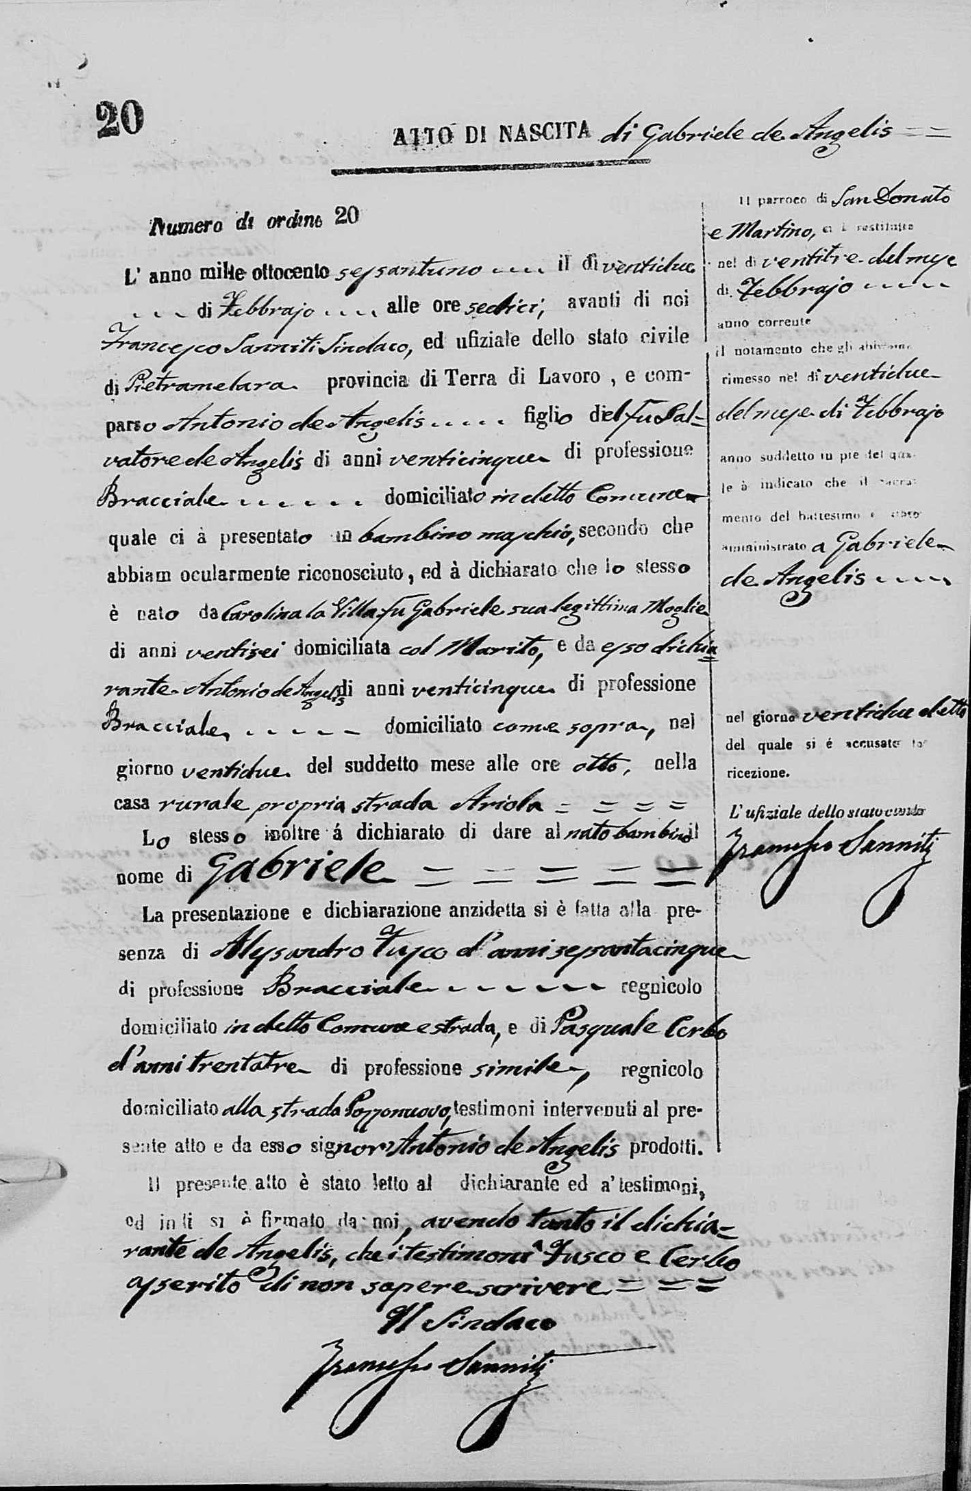 20
ATTO DI NASCITA di Gabriele de Angelis
Numero di ordine 20
L' anno mille ottocento sessantuno il dì ventidue
di Febbrajo alle ore sedici, avanti di noi
Francesco Sanniti Sindaco, ed ufiziale dello stato civile
di Pietramelara provincia di Terra di Lavoro, e com-
parso Antonio de Angelis figlio del fu Sal-
vatore de Angelis di anni venticinque di professione
Bracciale domiciliato in detto Comune
quale ci à presentato un bambino maschio, secondo che
abbiam ocularmente riconosciuto, ed à dichiarato che lo stesso
è nato da Carolina la Villa fu Gabriele sua legittima Moglie
di anni ventisei domiciliata col Marito, e da esso dichia
rante Antonio de Angelis di anni venticinque di professione
Bracciale domiciliato come sopra, nel
giorno ventidue del suddetto mese alle ore otto, nella
casa rurale propria strada Ariola
Lo stesso inoltre á dichiarato di dare al nato bambino il
nome di Gabriele
La presentazione e dichiarazione anzidetta si è fatta alla pre-
senza di Alessandro Fusco d'anni sessantacinque
di professione Bracciale regnicolo
domiciliato in detto Comune e strada, e di Pasquale Cerbo
d'anni trentatre di professione simile, regnicolo
domiciliato alla strada Pozzonuovo, testimoni intervenuti al pre-
sente atto e da esso signor Antonio de Angelis prodotti.
Il presente atto è stato letto al dichiarante ed a' testimoni,
ed indi si è firmato da noi, avendo tanto il dichia-
rante de Angelis, che i testimoni Fusco e Cerbo
asserito di non sapere scrivere
Il Sindaco
Francesco Sanniti
Il parroco di San Donato
e Martino, ci à restituito
nel dì ventitre del mese
di Febbrajo
anno corrente
il notamento che gli abbiamo
rimesso nel dì ventidue
del mese di Febbrajo
anno suddetto in piè del qua-
le à indicato che il sacra-
mento del battesimo è stato
amministrato a Gabriele
de Angelis
nel giorno ventidue detto
del quale si é accusato la
ricezione.
L' ufiziale dello stato civile
Francesco Sanniti